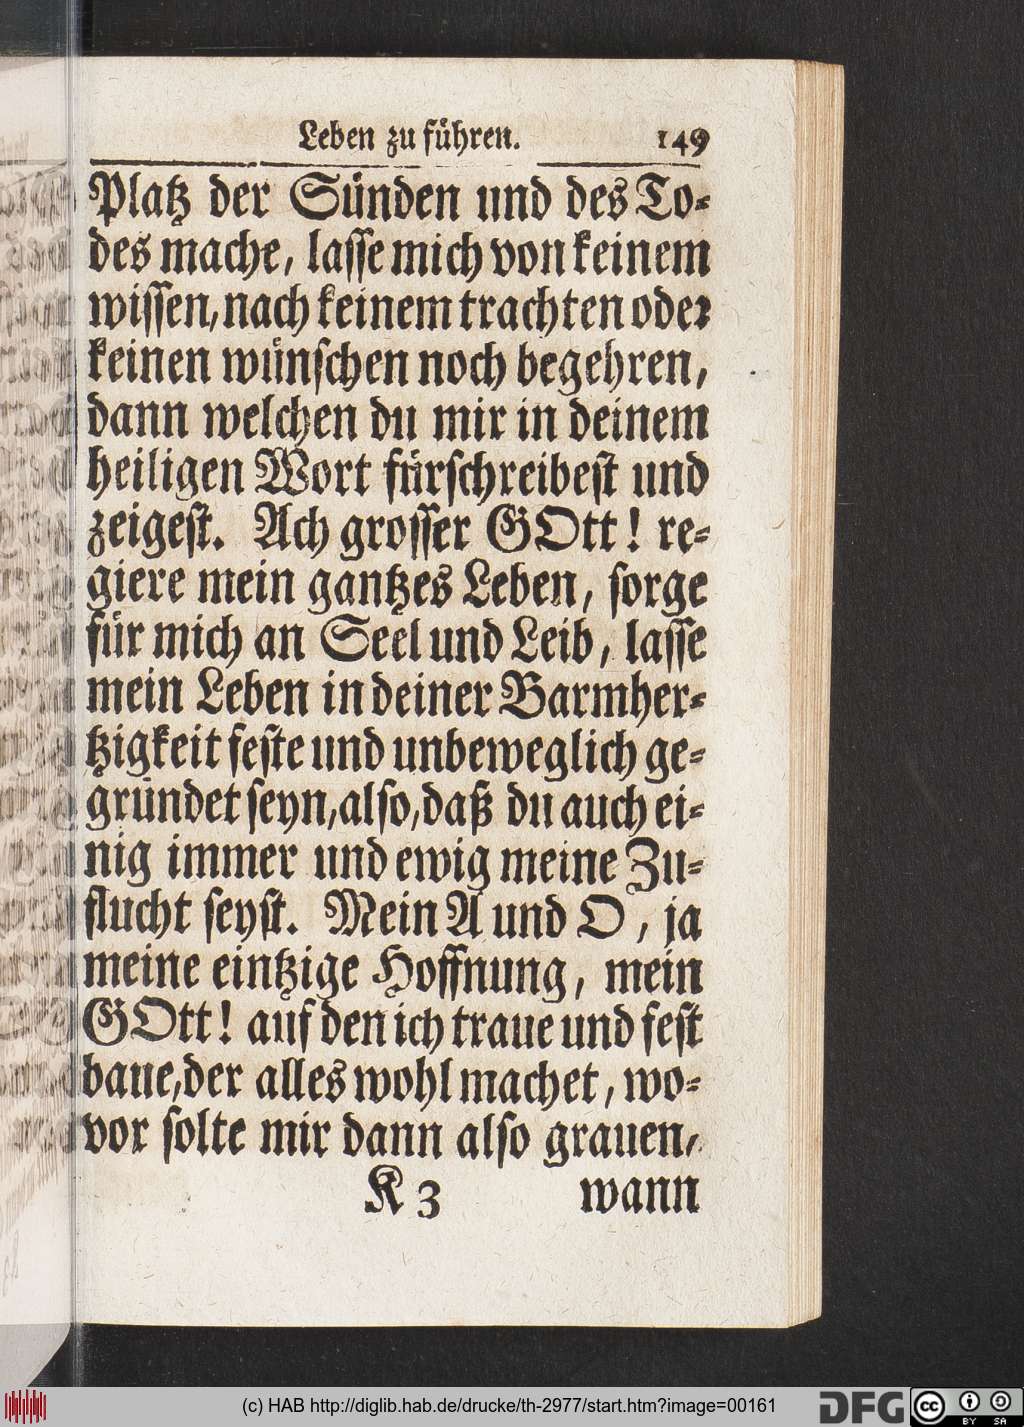 Leben zu führen. 149
Platz der Sünden und des To-
des mache, lasse mich von keinem
wissen, nach keinem trachten oder
keinen wünschen noch begehren,
dann welchen du mir in deinem
heiligen Wort fürschreibest und
zeigest. Ach grosser GOtt! re-
giere mein gantzes Leben, sorge
für mich an Seel und Leib, lasse
mein Leben in deiner Barmher-
tzigkeit feste und unbeweglich ge-
gründet seyn, also, daß du auch ei-
nig immer und ewig meine Zu-
flucht seyst. Mein A und O, ja
meine eintzige Hoffnung, mein
GOtt! auf den ich traue und fest
baue, der alles wohl machet, wo-
vor solte mir dann also grauen,
K 3 wann
(c) HAB http://diglib.hab.de/drucke/th-2977/start.htm?image=00161
DFG cc BY SA